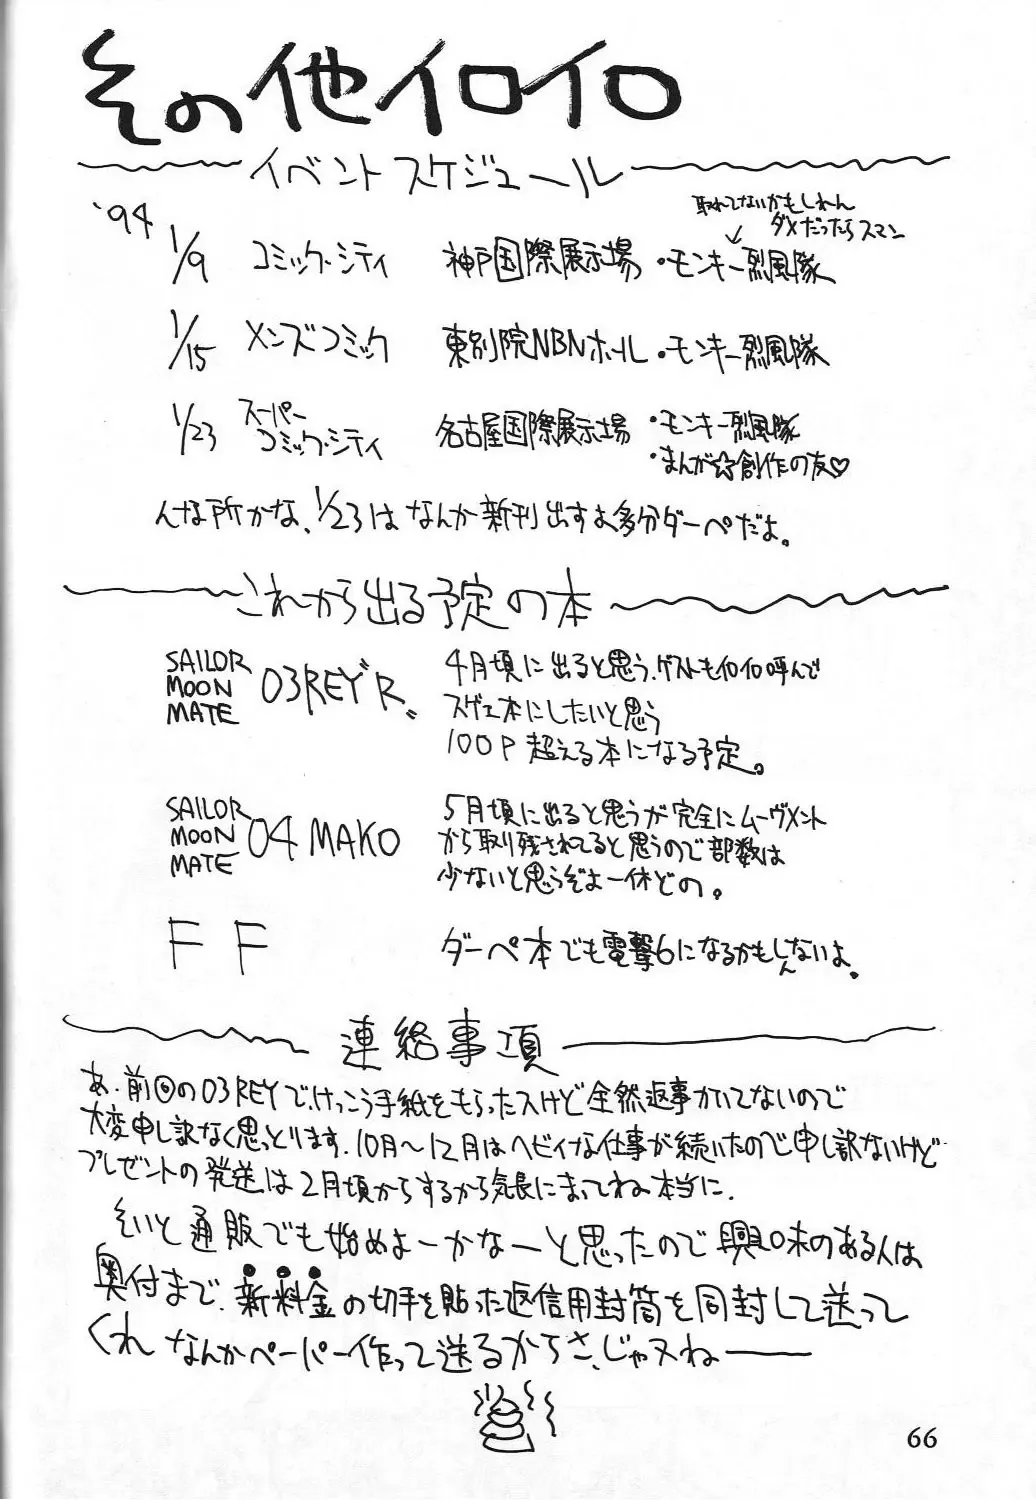 その他イロイロ
イベントスケジュール
'94
取れてないかもしれん
ダメだったらスマン
1/9 コミック・シティ 神戸国際展示場 ・モンキー烈風隊
1/15 メンズコミック 東別院NBNホール ・モンキー烈風隊
1/23 スーパーコミック・シティ 名古屋国際展示場 ・モンキー烈風隊
・まんが☆創作の友♡
んな所かな、1/23はなんか新刊出すよ多分ダーペだよ。
これから出る予定の本
SAILOR MOON MATE 03REY"R〟
4月頃に出ると思う、ゲストもイロイロ呼んで
スゲェ本にしたいと思う
100P超える本になる予定。
SAILOR MOON MATE 04 MAKO
5月頃に出ると思うが完全にムーヴメント
から取り残されてると思うので部数は
少ないと思うぞよー休どの。
FF
ダーペ本でも電撃6になるかもしんないよ。
連絡事項
あ、前回の03REYで、けっこう手紙をもらったスけど全然返事かいてないので
大変申し訳なく思っとります、10月〜12月はヘビィな仕事が続いたので申し訳ないけど
プレゼントの発送は2月頃からするから気長にまっててね本当に、
そいと通販でも始めよーかなーと思ったので興味のある人は
奥付まで、新料金の切手を貼った返信用封筒を同封して送って
くれ なんかペーパー作って送るからさ、じゃヌね――
66